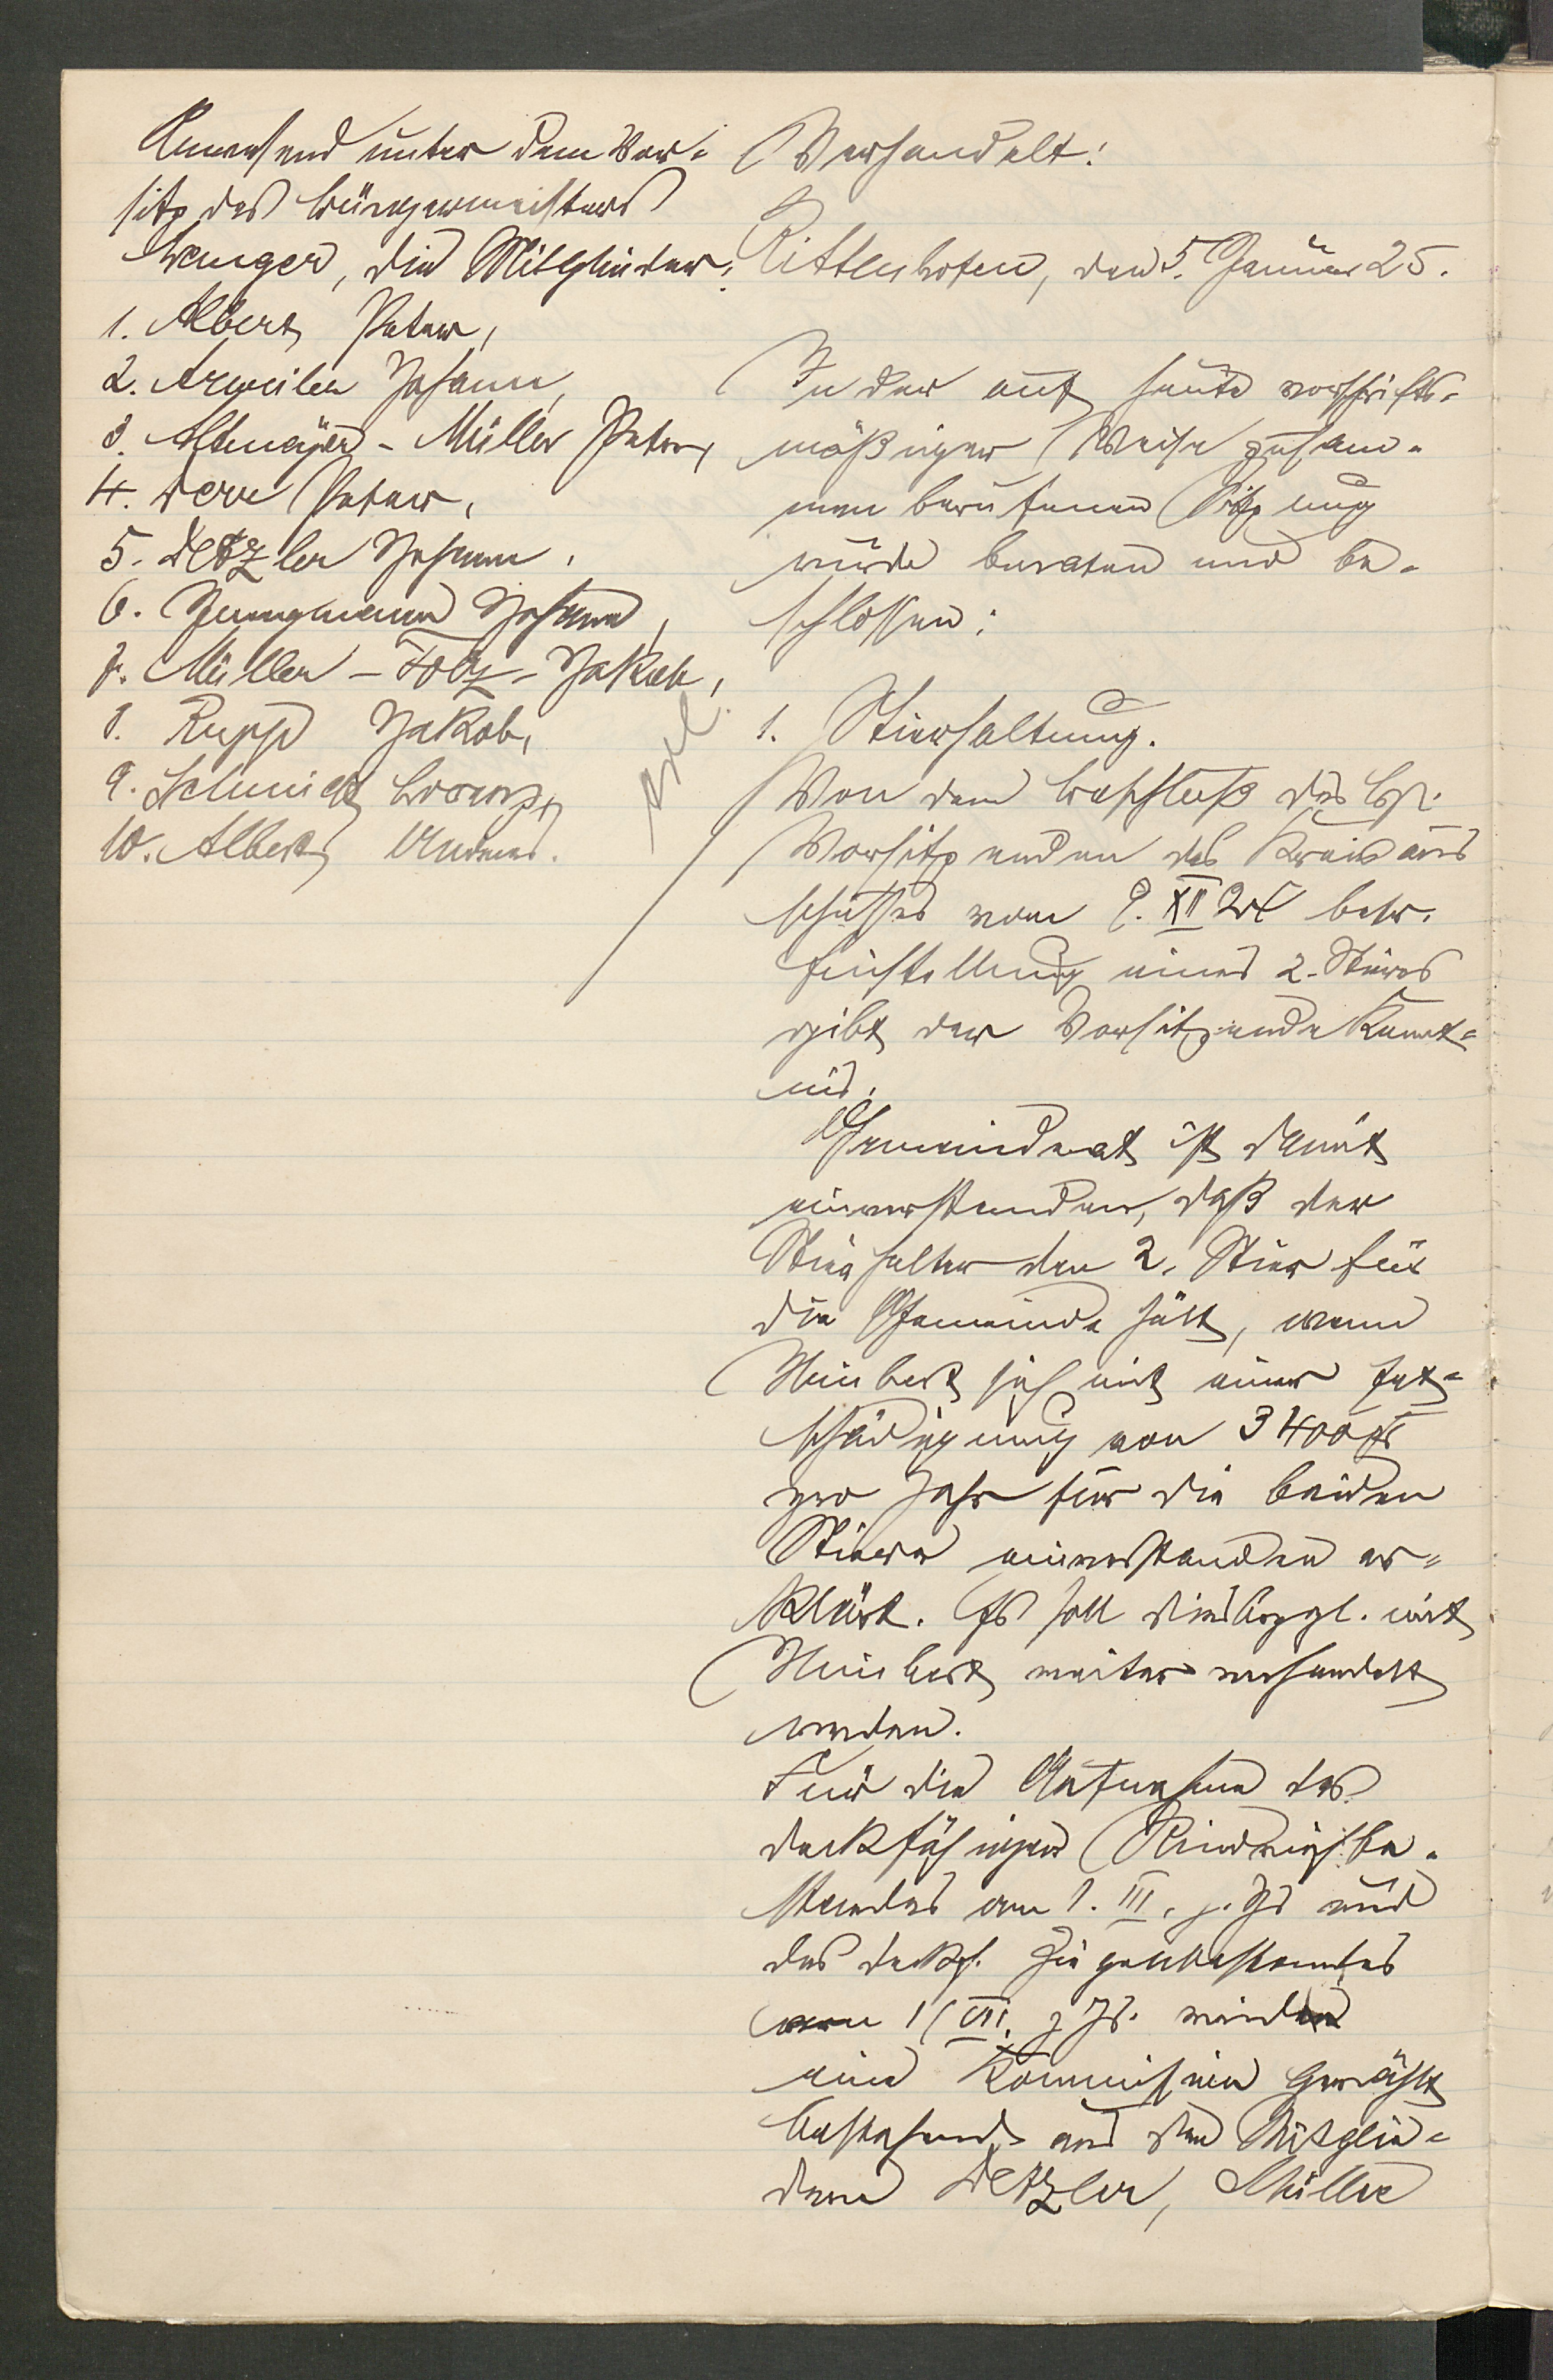 Anwesend unter dem Vor-
sitz des Bürgermeisters
Wanger, die Mitglieder:
1. Albert Peter,
2. Arweiler Johann,
3. Altmeyer-Müller Peter,
4. Derr Peter,
5. Detzler Johann,
6. Jungmann Johann,
7. Müller-Folz-Jakob,
8. Rupp Jakob,
9. Schmidt Lorenz,
10. Albert Andreas.
Verhandelt:
Rittenhofen, den 5. Januar 25.
In der auf heute vorschrifts-
mäßiger Weise zusam-
men berufenen Sitzung
wurde beraten und be-
schlossen:
1. Stierhaltung.
Von dem Beschluß des H.
Vorsitzenden des Kreisaus
schusses vom 9. XII 24 betr.
Einstellung eines 2. Stieres
gibt der Vorsitzende Kennt-
nis.
Gemeinderat ist damit
einverstanden, daß der
Stierhalter den 2. Stier für
die Gemeinde hält, wenn
Heubert sich mit einer Ent-
schädigung von 3400 fr
pro Jahr für die beiden
Stiere einverstanden er-
klärt. Es soll diesbezgl. mit
Heubert weiter verhandelt
werden.
Für die Aufnahme des
deckfähigen Rindviehbe-
standes am 1. III. j. Js und
des deckf. Ziegenbestandes
am 1. VII. j. Js. wird
eine Kommission gewählt
bestehend aus den Mitglie-
dern Detzler, Müller